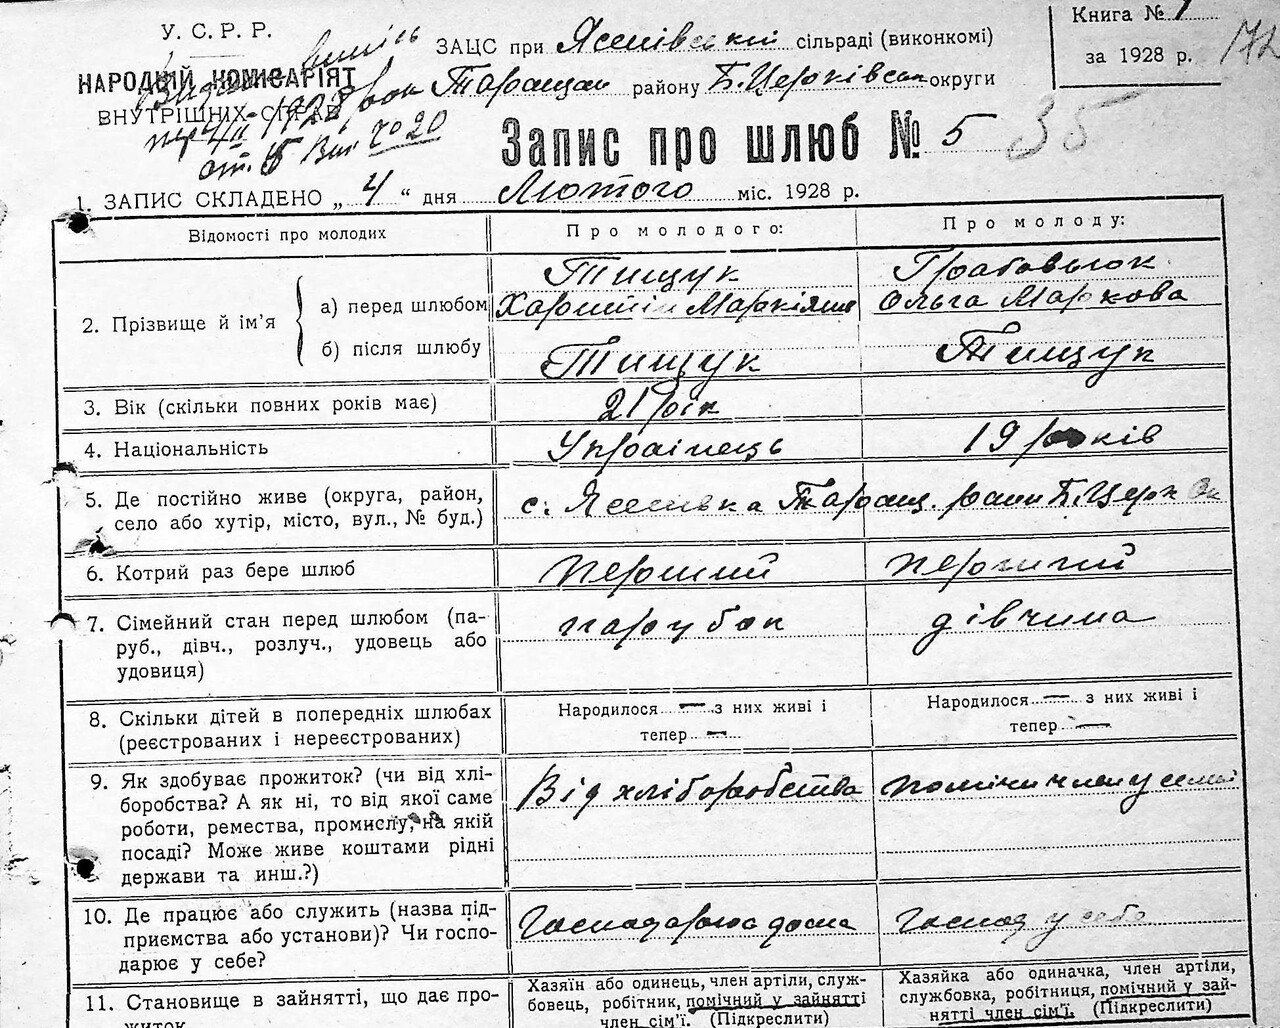 У. С. Р. Р.
НАРОДНІЙ КОМИСАРІЯТ
ВНУТРІШНІХ СПРАВ
Видано випись
1928 рок
ст. Вик № 20
ЗАЦС при Ясенівській сільраді (виконкомі)
Таращан району Б.Церківськ округи
Книга № 1
за 1928 р.
Запис про шлюб № 5
35
1. ЗАПИС СКЛАДЕНО „ 4 “ дня Лютого міс. 1928 р.
Відомості про молодих
Про молодого:
Про молоду:
2. Прізвище й ім’я
а) перед шлюбом
Тищук
Харитін Маркіян
Грабовьюк
Ольга Маркова
б) після шлюбу
Тищук
Тищук
3. Вік (скільки повних років має)
21 рік
4. Національність
Украінець
19 років
5. Де постійно живе (округа, район,
село або хутір, місто, вул., № буд.)
с. Ясенівка Таращ. рани Б.Церк Ок
6. Котрий раз бере шлюб
перший
перший
7. Сімейний стан перед шлюбом (па-
руб., дівч., розлуч., удовець або
удовиця)
парубок
дівчина
8. Скільки дітей в попередніх шлюбах
(реєстрованих і нереєстрованих)
Народилося — з них живі і
тепер —
Народилося — з них живі і
тепер —
9. Як здобуває прожиток? (чи від хлі-
боробства? А як ні, то від якої саме
роботи, ремества, промислу, на якій
посаді? Може живе коштами рідні
держави та инш.?)
Від хліборобства
помічн член у семї
10. Де працює або служить (назва під-
приємства або установи)? Чи госпо-
дарює у себе?
Господарює дома
господ у себе
11. Становище в зайнятті, що дає про-
житок
Хазяїн або одинець, член артіли, служ-
бовець, робітник, помічний у зайнятті
член сім’ї. (Підкреслити)
Хазяйка або одиначка, член артіли,
службовка, робітниця, помічний у зай-
нятті член сім’ї. (Підкреслити)